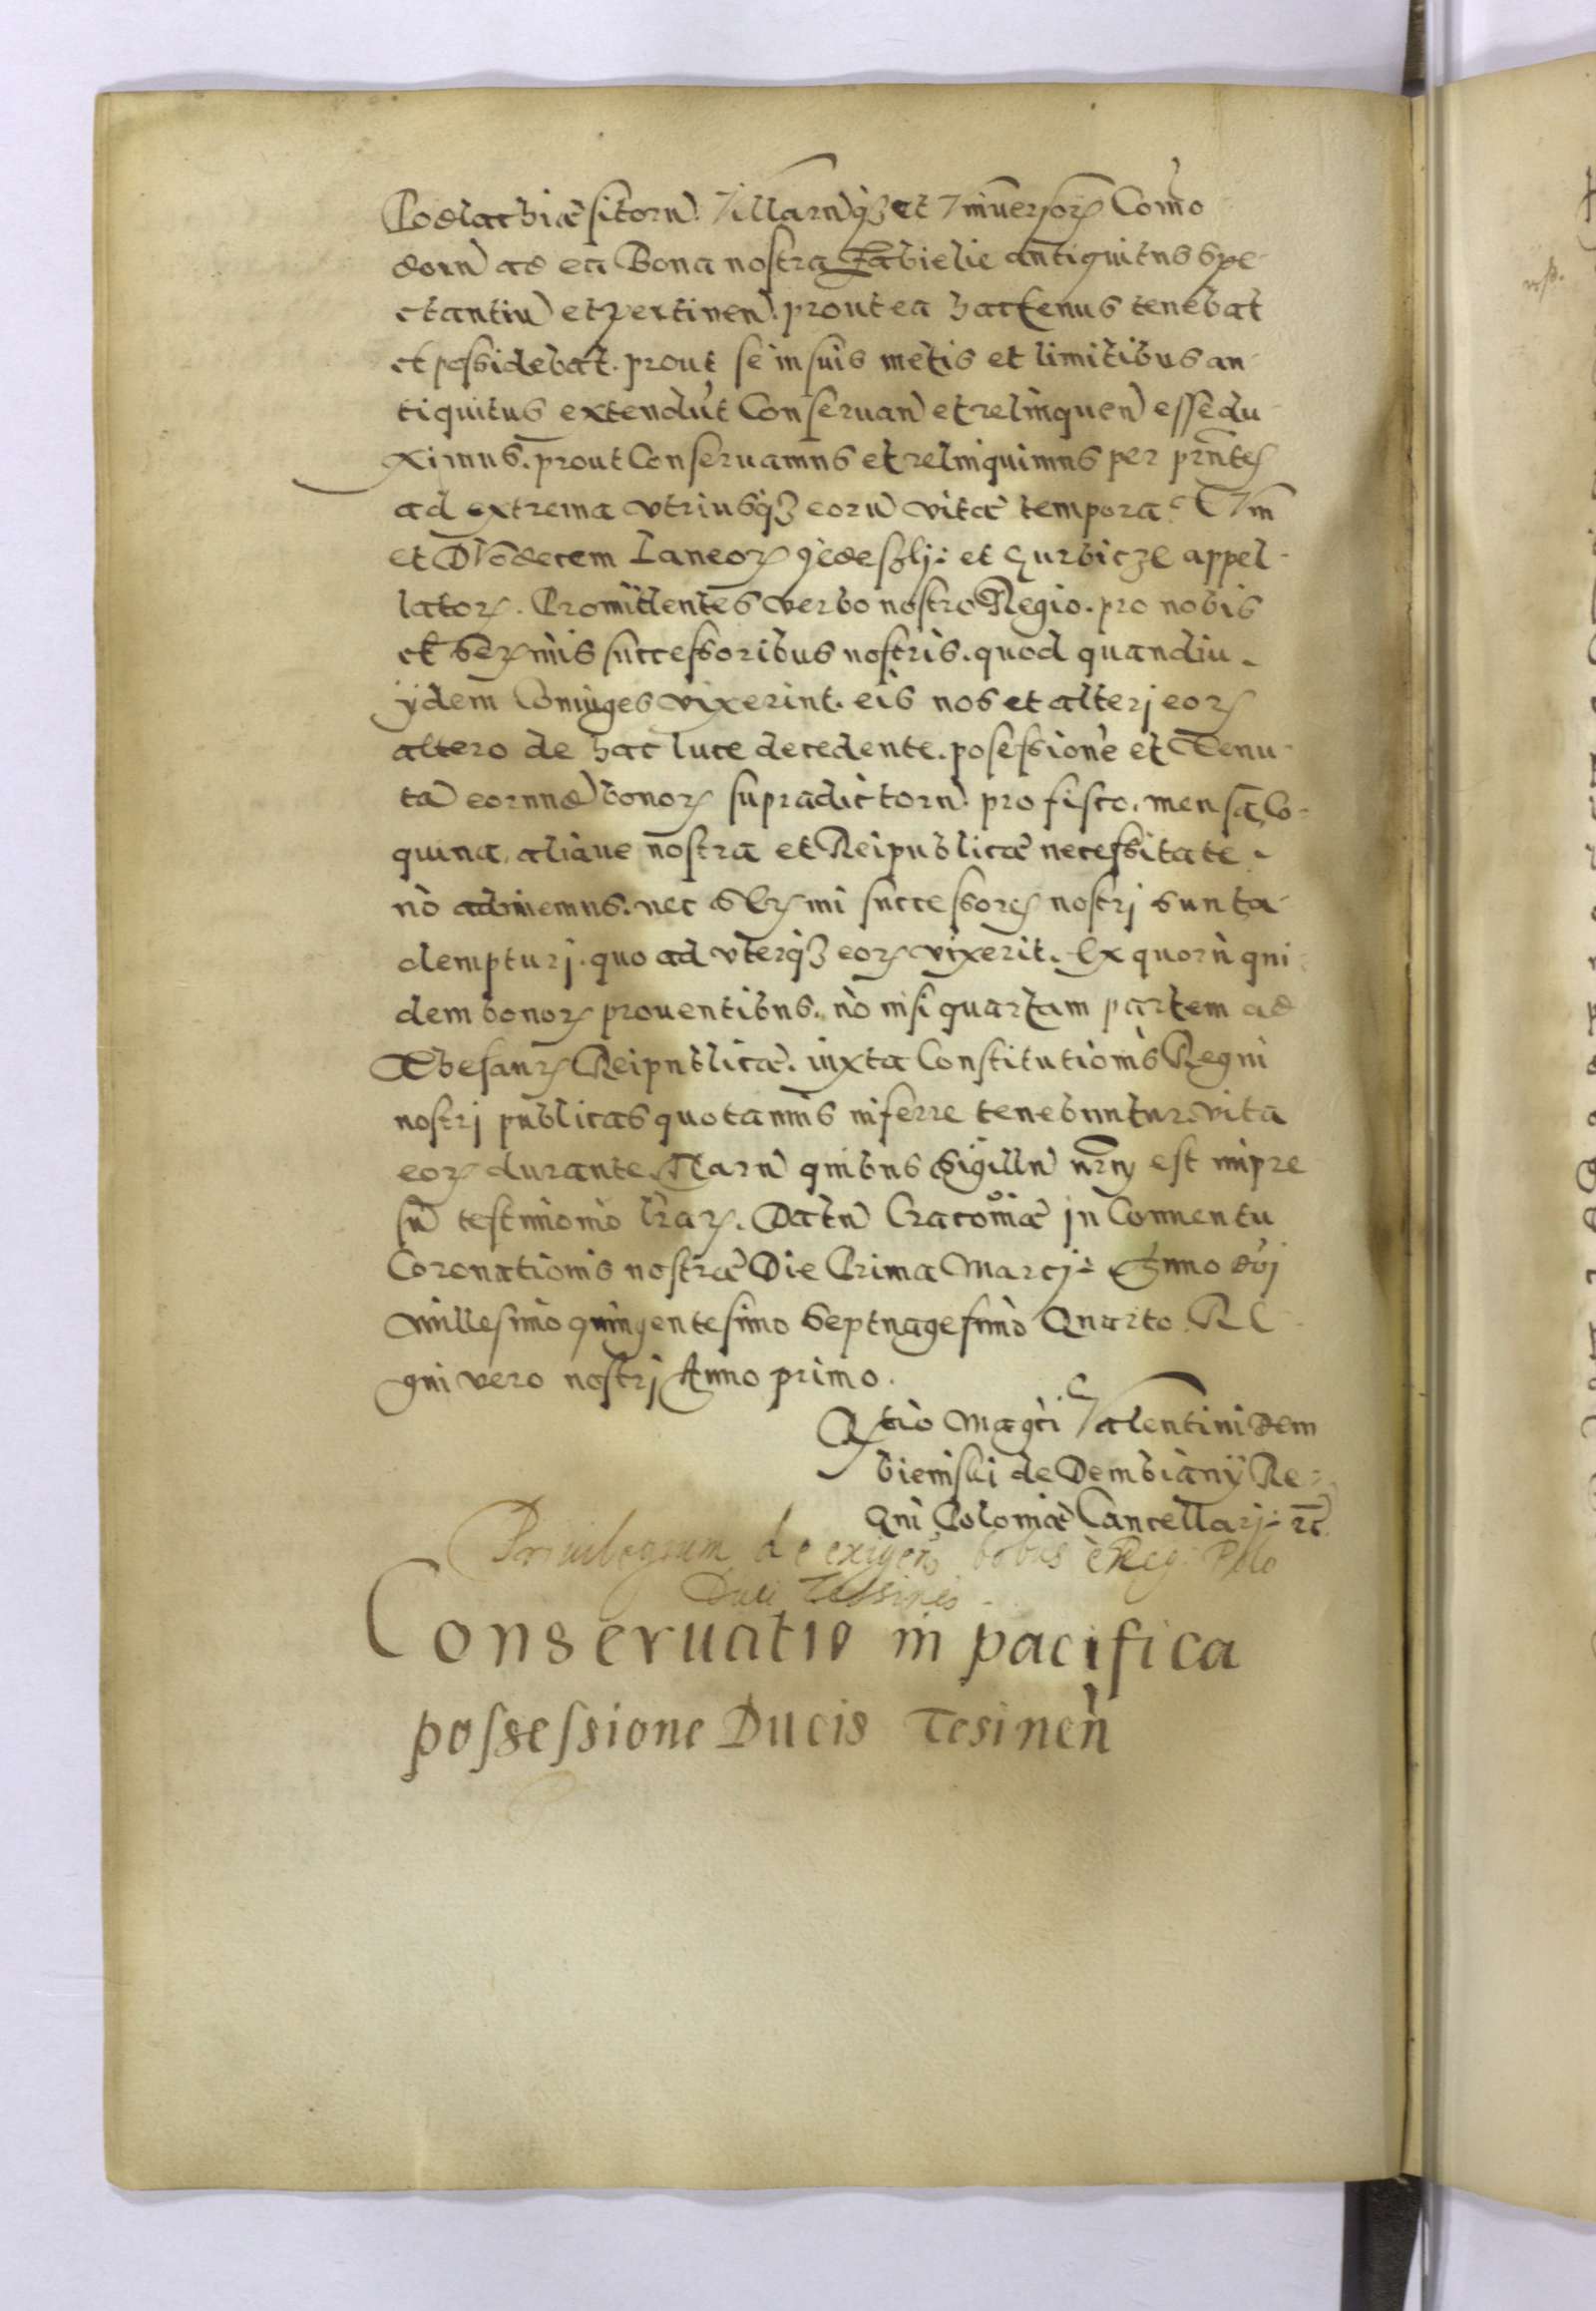 Podlachiæ sitorũ. Villarũq₃ et Vniuersorꝝ Com̃o
dorũ ad ea Bona nostra Zabielie antiquitus spe-
ctantiũ et pertineñ. prout ea hactenus tenebat
et possidebat. prout se in suis metis et limitibus an-
tiquitus extendũt Conseruañ et relinqueñ esse du-
ximus. prout Conseruamus et relinquimus per prñtes
ad extrema vtriusq₃ eorũ vitæ tempora.
et Duodecem Laneorꝝ et appel-
latorꝝ. Promittentes verbo nostro Regio. pro nobis
et Serꝫmis successoribus nostris. quod quandiu
ijdem Coniuges vixerint. eis nos et alterj eorꝝ
altero de hac luce decedente. posessionẽ et Tenu-
tã eorundẽ bonorꝝ supradictorũ. pro fisco. mensa, Co-
quina, aliaue nostra et Reipublicæ necessitate
nõ adimemus. nec Serꝫmi successores nostrj sunt a-
dempturj. quo ad vterq₃ eorꝝ vixerit. Ex quorũ qui-
dem bonorꝝ prouentibus. nõ nisi quartam partem ad
Thesaurꝫ Reipublicæ. iuxta Constitutionis Regni
nostrj publicas quotannis inferre tenebuntur. vita
eorꝝ durante. Harũ quibus Sigillũ nr̃m est impre
sũ testimonio lr̃arꝝ. Datũ Cracouiæ in Conuentu
Coronationis nostræ Die Prima Marcj. Anno dñj
Millesimo quingentesimo Septuagesimo Quarto. Re-
gni vero nostrj Anno primo.
Rtio Mag̃ci Valentini Dem
bienskj de Dembiany Re-
gni Poloniæ Cancellarj. rc̃
Priuilegium de exigeñ bobus è Reg: Polo
Duci Tessineñ
Conseruatio in pacifica
possessione Ducis Tesineñ